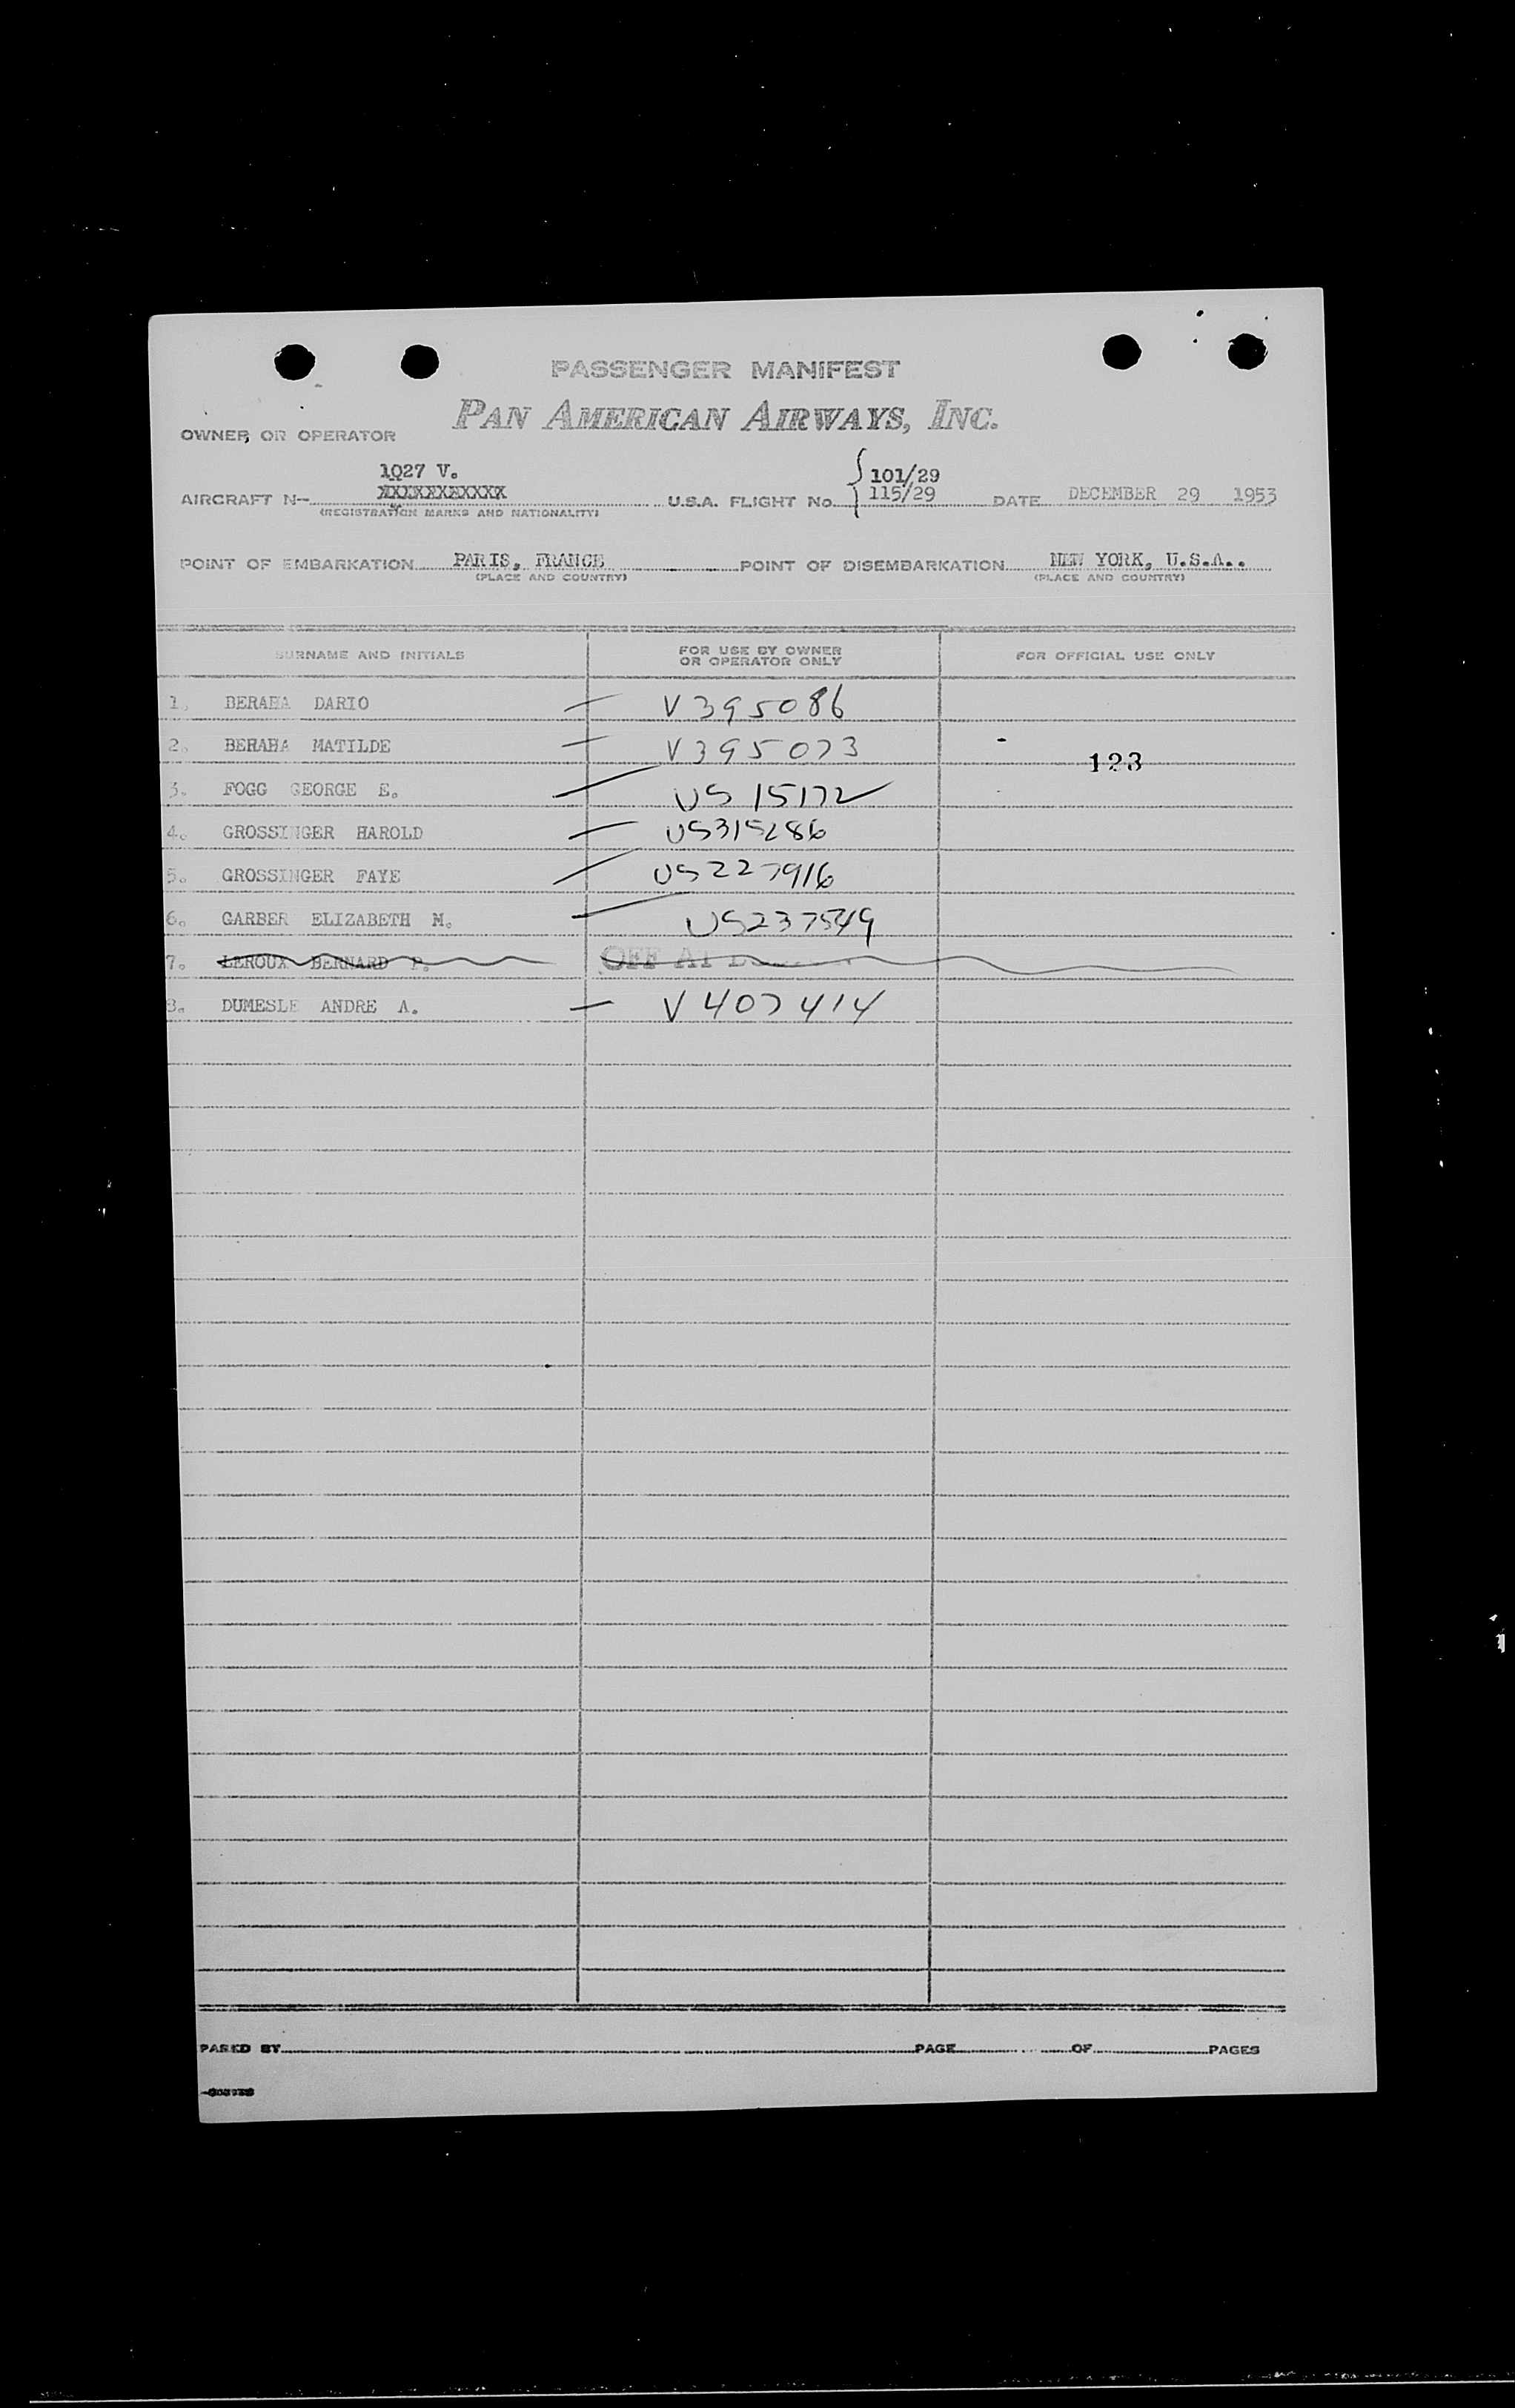 PASSENGER MANIFEST
PAN AMERICAN AIRWAYS, INC.
OWNER OR OPERATOR
1027 V. 101/29
AIRCRAFT N- XXXXXXXXXXX U.S.A. FLIGHT No. 115/29 DATE DECEMBER 29 1953
(REGISTRATION MARKS AND NATIONALITY)
POINT OF EMBARKATION PARIS, FRANCE POINT OF DISEMBARKATION NEW YORK, U.S.A..
(PLACE AND COUNTRY) (PLACE AND COUNTRY)
SURNAME AND INITIALS FOR USE BY OWNER OR OPERATOR ONLY FOR OFFICIAL USE ONLY
1. BERAHA DARIO V395086
2. BERAHA MATILDE V395073
123
3. FOGG GEORGE E. US 15172
4. GROSSINGER HAROLD US315286
5. GROSSINGER FAYE US227916
6. GARBER ELIZABETH M. US237549
7. LEROUX BERNARD P. OFF AT
8. DUMESLE ANDRE A. V407414
PARED BY PAGE OF PAGES